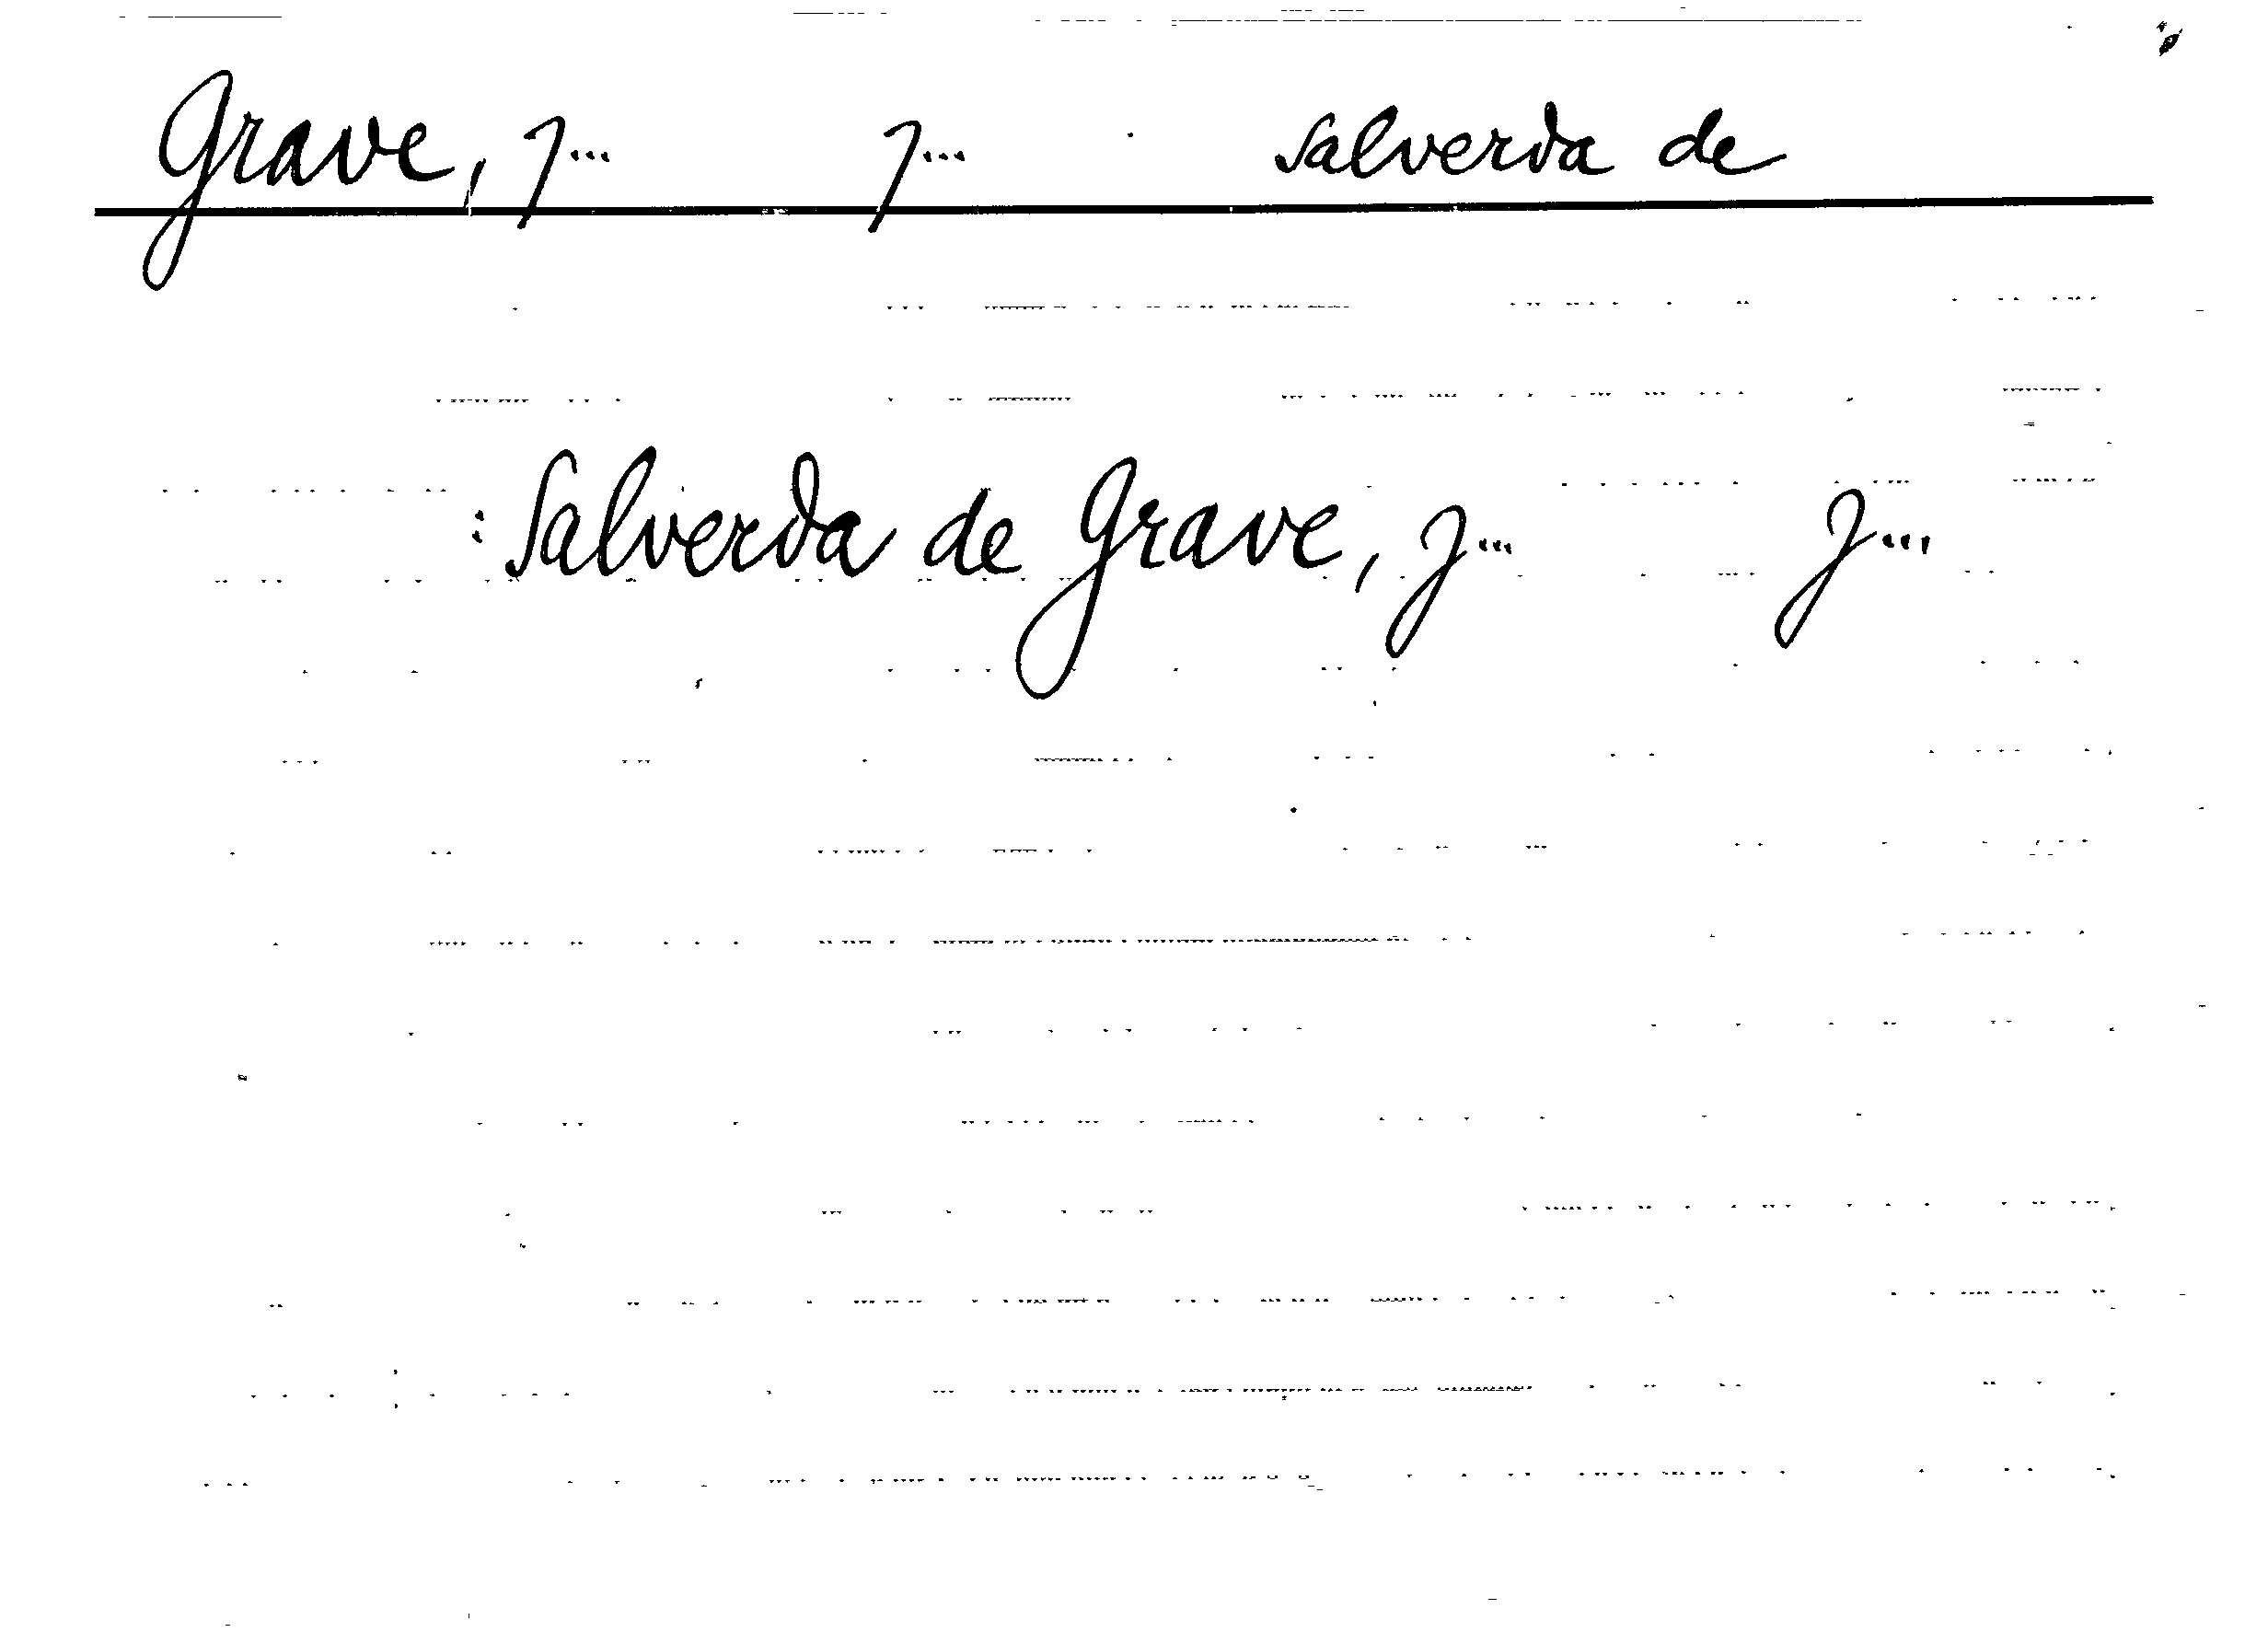 Grave, J... J... Salverda de
: Salverda de Grave, J... J...